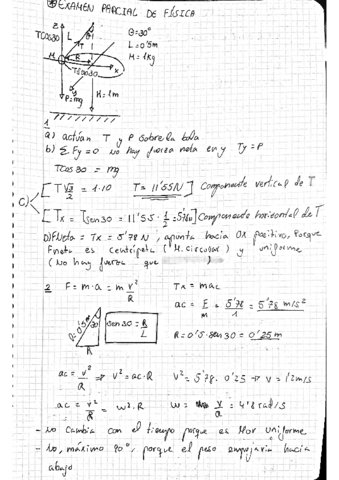 EXAMEN PARCIAL DE FÍSICA
Z
TCos30
θ=30°
L = 0'5m
M = 1Kg
L
T
M
R
X
TSen30
P=mg
H=1m
1
a) actúan T y P sobre la bola
b) ΣFy = 0 No hay fuerza neta en y Ty=P
TCos30 = mg
c) [T √3/2 = 1·10 T=11'55N] Componente vertical de T
[Tx = Tsen30 = 11'55·1/2 = 5'78N] Componente horizontal de T
D) FNeta = Tx = 5'78N, apunta hacia OX positivo, Porque
Fneta es centípeta (M. Circular) y uniforme
(No hay fuerza que )
2 F = m·a = m v²/R Tx = mac
ac = F/m = 5'78/1 = 5'78 m/s²
l=0'5m
30
R
sen30 = R/L
R = 0'5·Sen30 = 0'25m
ac = v²/R => v² = ac·R v² = 5'78·0'25 -> v=1'2m/s
ac = v²/R = w²·R w = v/R = 4'8rad/s
- No cambia con el tiempo porque es Mov uniforme
- No, máximo 90°, porque el peso empujaría hacia
abajo